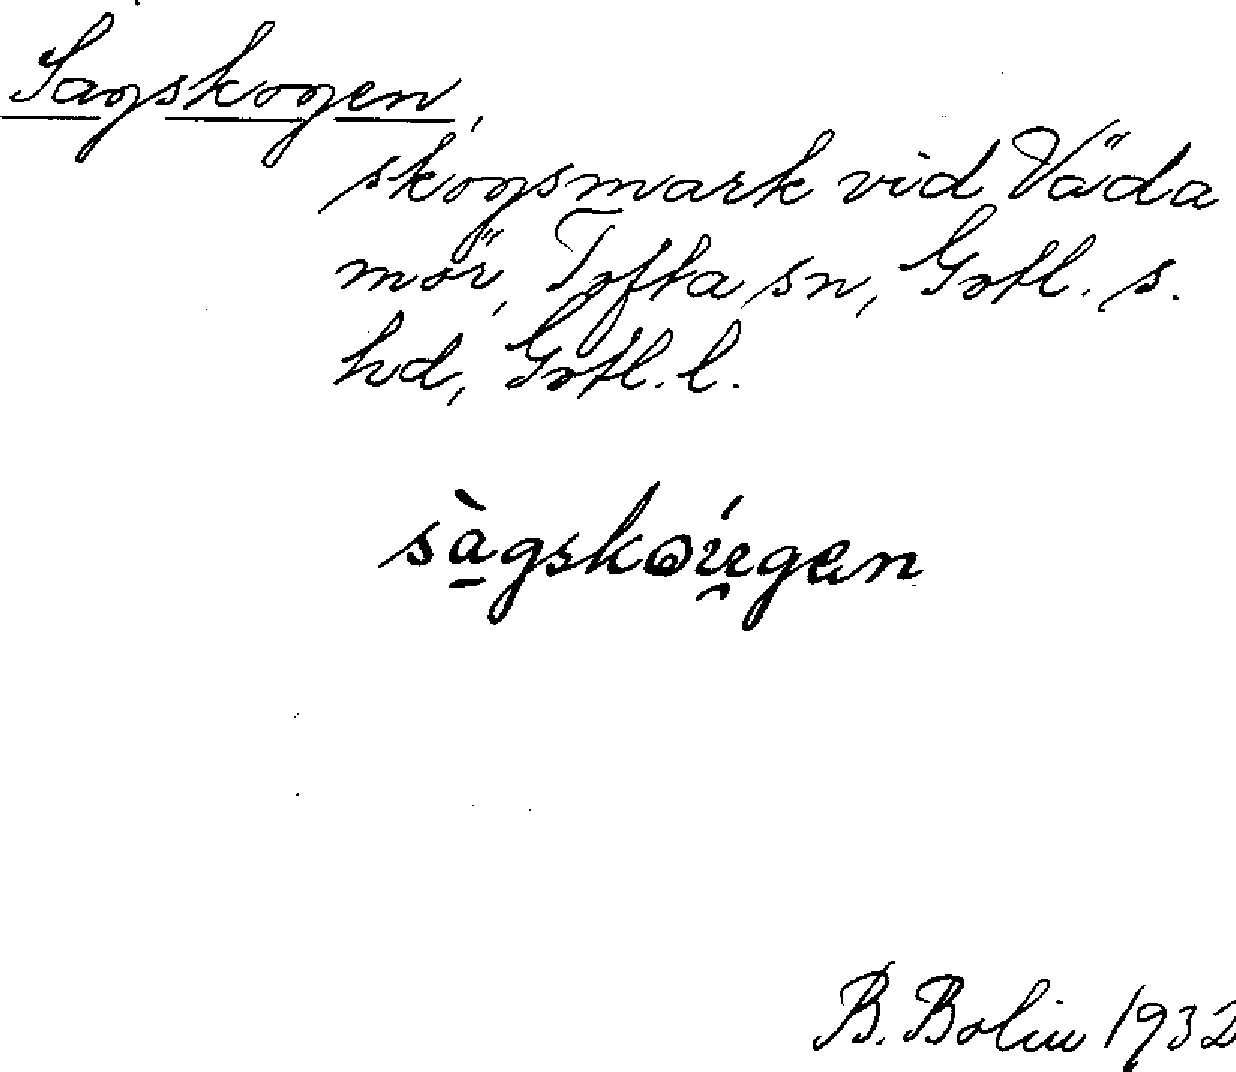 Sagskogen,
skogsmark vid Väda
mör, Tofta sn, Gotl. s.
hd, Gotl. l.
sàgskoúgen
B. Bolin 1932